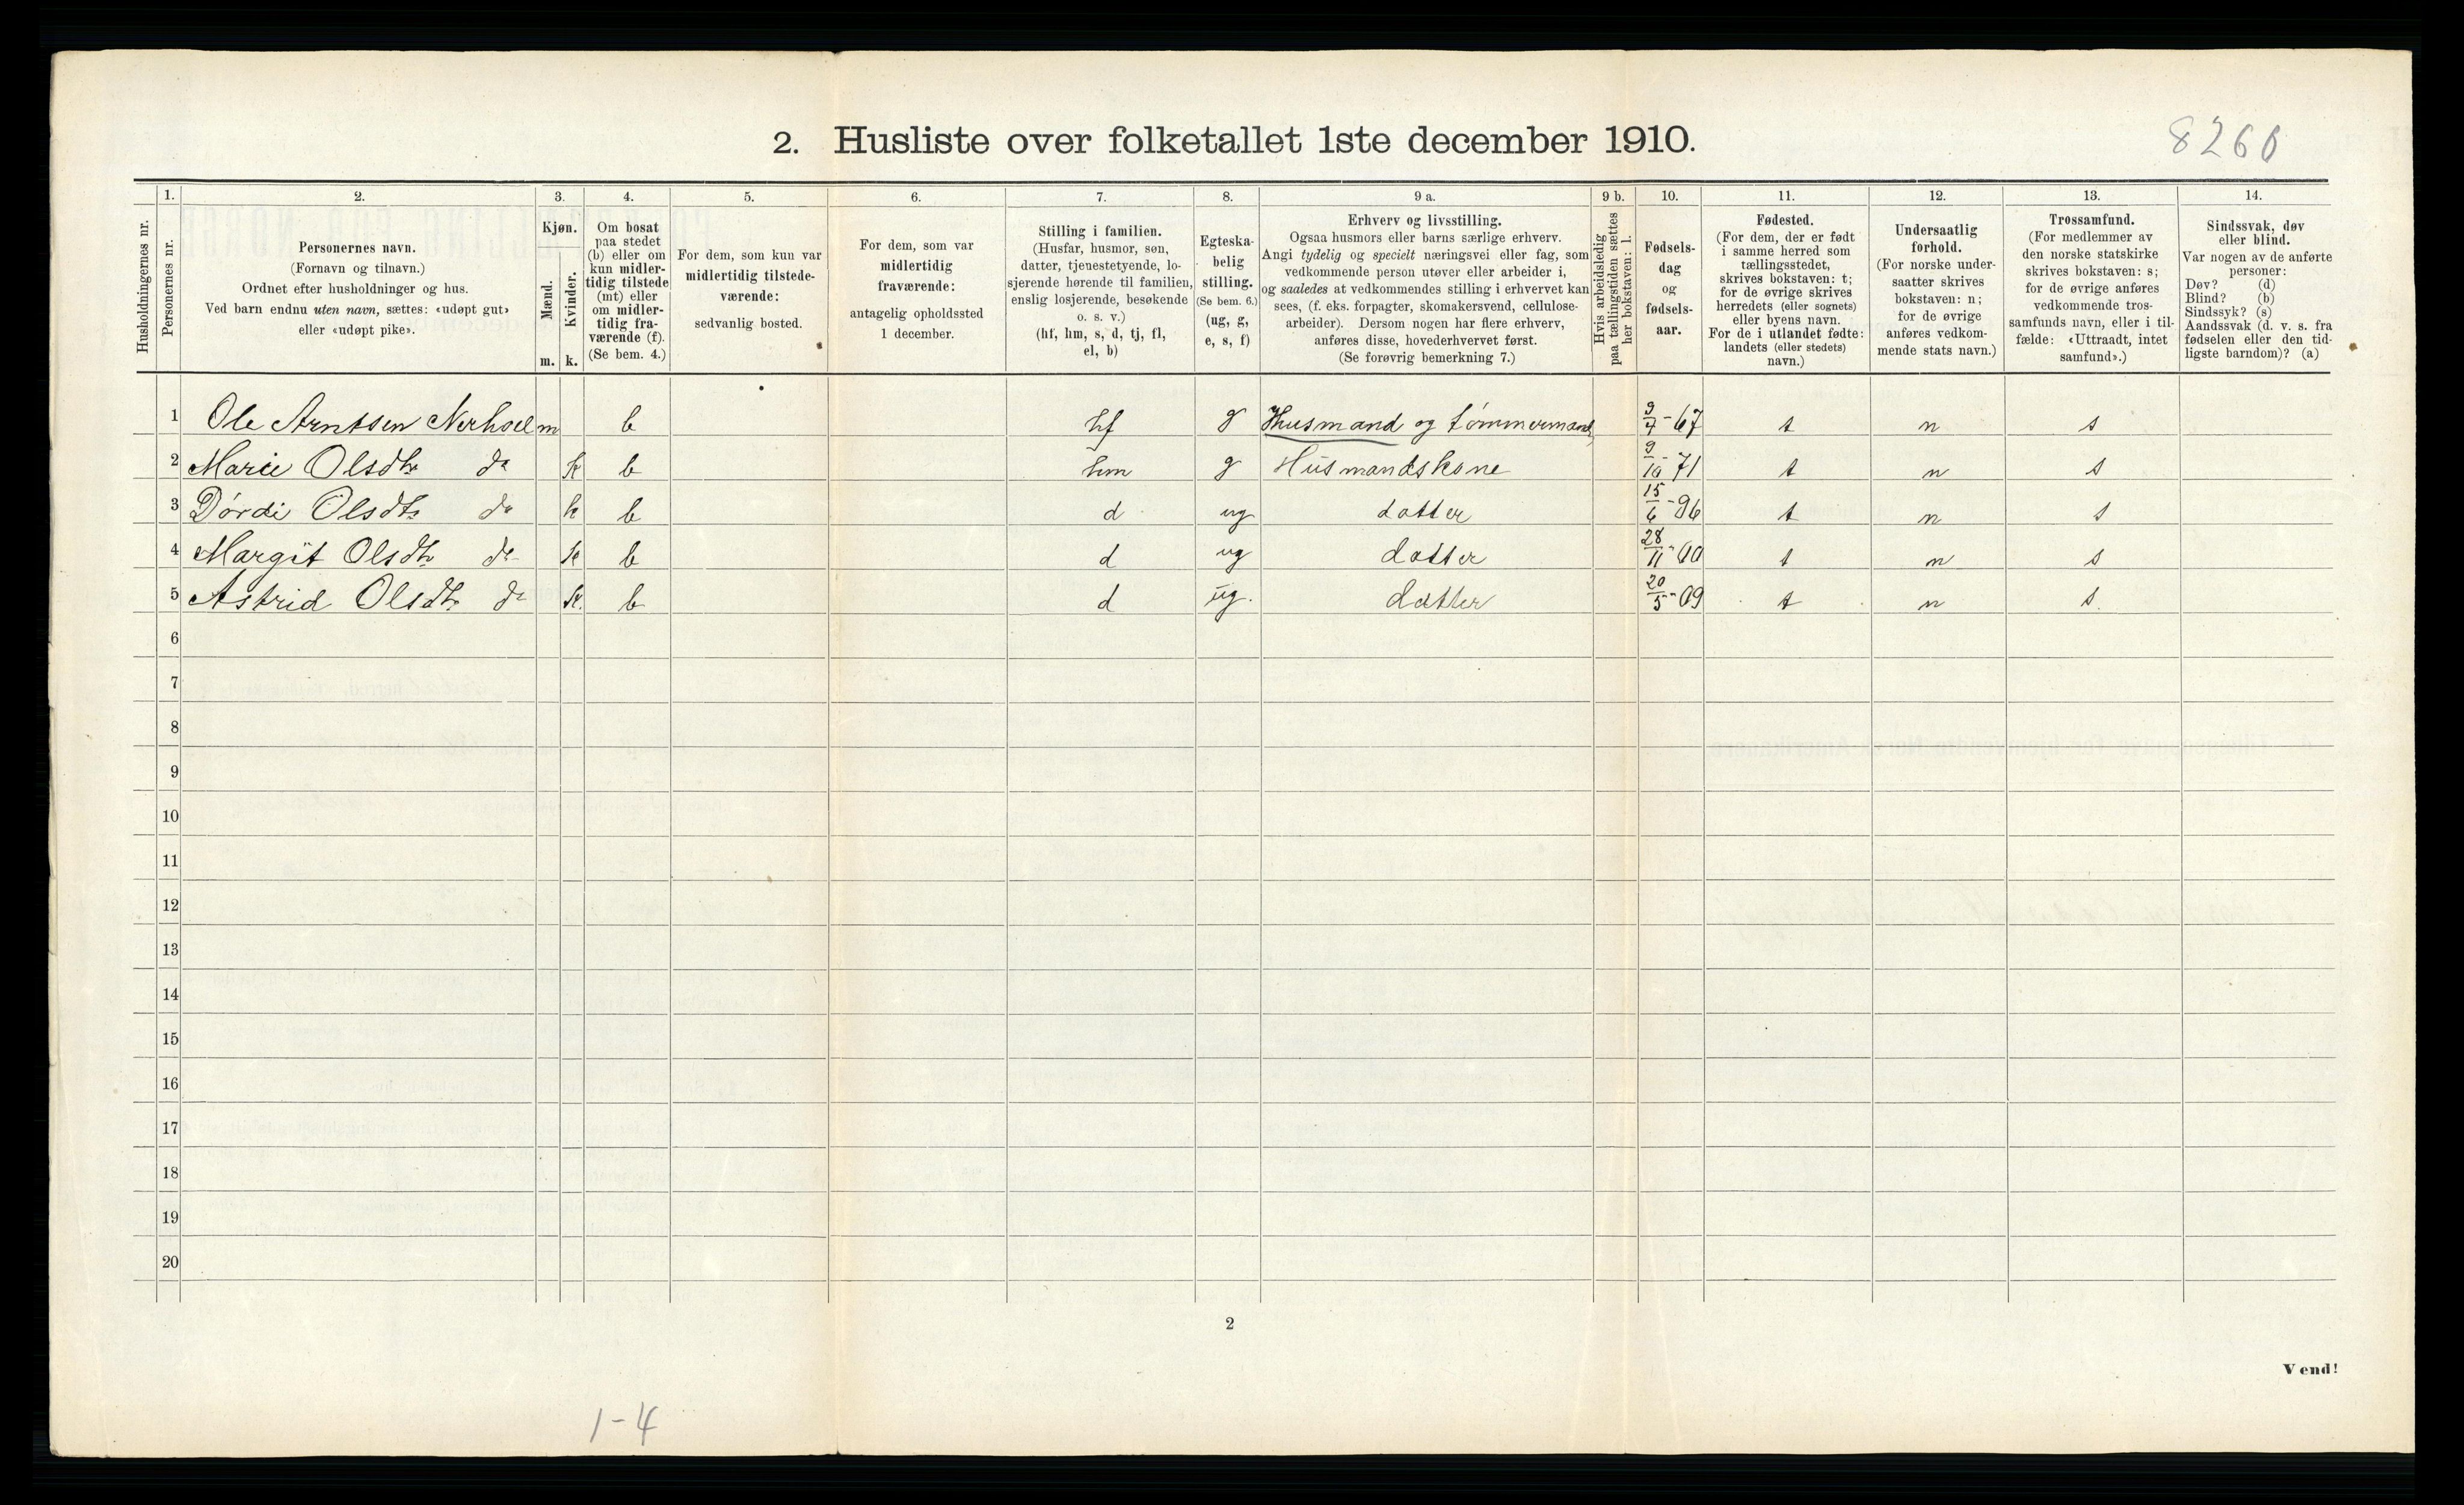 2. Husliste over folketallet 1ste december 1910.
8260
Husholdningernes nr.
1. Personernes nr.
2. Personernes navn.
(Fornavn og tilnavn.)
Ordnet efter husholdninger og hus.
Ved barn endnu uten navn, sættes: «udøpt gut»
eller «udøpt pike».
3. Kjøn.
Mænd. m.
Kvinder. k.
4. Om bosat
paa stedet
(b) eller om
kun midler-
tidig tilstede
(mt) eller
om midler-
tidig fra-
værende (f).
(Se bem. 4.)
5. For dem, som kun var
midlertidig tilstede-
værende:
sedvanlig bosted.
6. For dem, som var
midlertidig
fraværende:
antagelig opholdssted
1 december.
7. Stilling i familien.
(Husfar, husmor, søn,
datter, tjenestetyende, lo-
sjerende hørende til familien,
enslig losjerende, besøkende
o. s. v.)
(hf, hm, s, d, tj, fl,
el, b)
8. Egteska-
belig
stilling.
(Se bem. 6.)
(ug, g,
e, s, f)
9 a. Erhverv og livsstilling.
Ogsaa husmors eller barns særlige erhverv.
Angi tydelig og specielt næringsvei eller fag, som
vedkommende person utøver eller arbeider i,
og saaledes at vedkommendes stilling i erhvervet kan
sees, (f. eks. forpagter, skomakersvend, cellulose-
arbeider). Dersom nogen har flere erhverv,
anføres disse, hovederhvervet først.
(Se forøvrig bemerkning 7.)
9 b. Hvis arbeidsledig
paa tællingstiden sættes
her bokstaven: l.
10. Fødsels-
dag
og
fødsels-
aar.
11. Fødested.
(For dem, der er født
i samme herred som
tællingsstedet,
skrives bokstaven: t;
for de øvrige skrives
herredets (eller sognets)
eller byens navn.
For de i utlandet fødte:
landets (eller stedets)
navn.)
12. Undersaatlig
forhold.
(For norske under-
saatter skrives
bokstaven: n;
for de øvrige
anføres vedkom-
mende stats navn.)
13. Trossamfund.
(For medlemmer av
den norske statskirke
skrives bokstaven: s;
for de øvrige anføres
vedkommende tros-
samfunds navn, eller i til-
fælde: «Uttraadt, intet
samfund».)
14. Sindssvak, døv
eller blind.
Var nogen av de anførte
personer:
Døv? (d)
Blind? (b)
Sindssyk? (s)
Aandssvak (d. v. s. fra
fødselen eller den tid-
ligste barndom)? (a)
1 Ole Arntsen Nerhoel m b hf g Husmand og tømmermand 9/7-67 t n s
2 Marie Olsdtr do k b hm g Husmandskone 9/10-71 t n s
3 Dørdi Olsdtr do k b d ug datter 15/6-96 t n s
4 Margit Olsdtr do k b d ug datter 28/11-00 t n s
5 Astrid Olsdtr do k. b d ug. datter 20/5-09 t n s.
6
7
8
9
10
11
12
13
14
15
16
17
18
19
20
2
Vend!
1-4